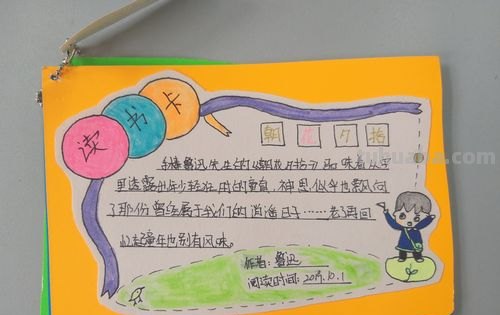 读书卡
朝花夕拾
手捧鲁迅先生的《朝花夕拾》品味着从字
里透露出年少轻狂用的童真,神思似乎也飘向
了那份曾经属于我们的逍遥日子……老了再回
忆童年也别有风味。
作者:鲁迅
阅读时间:2019.10.1